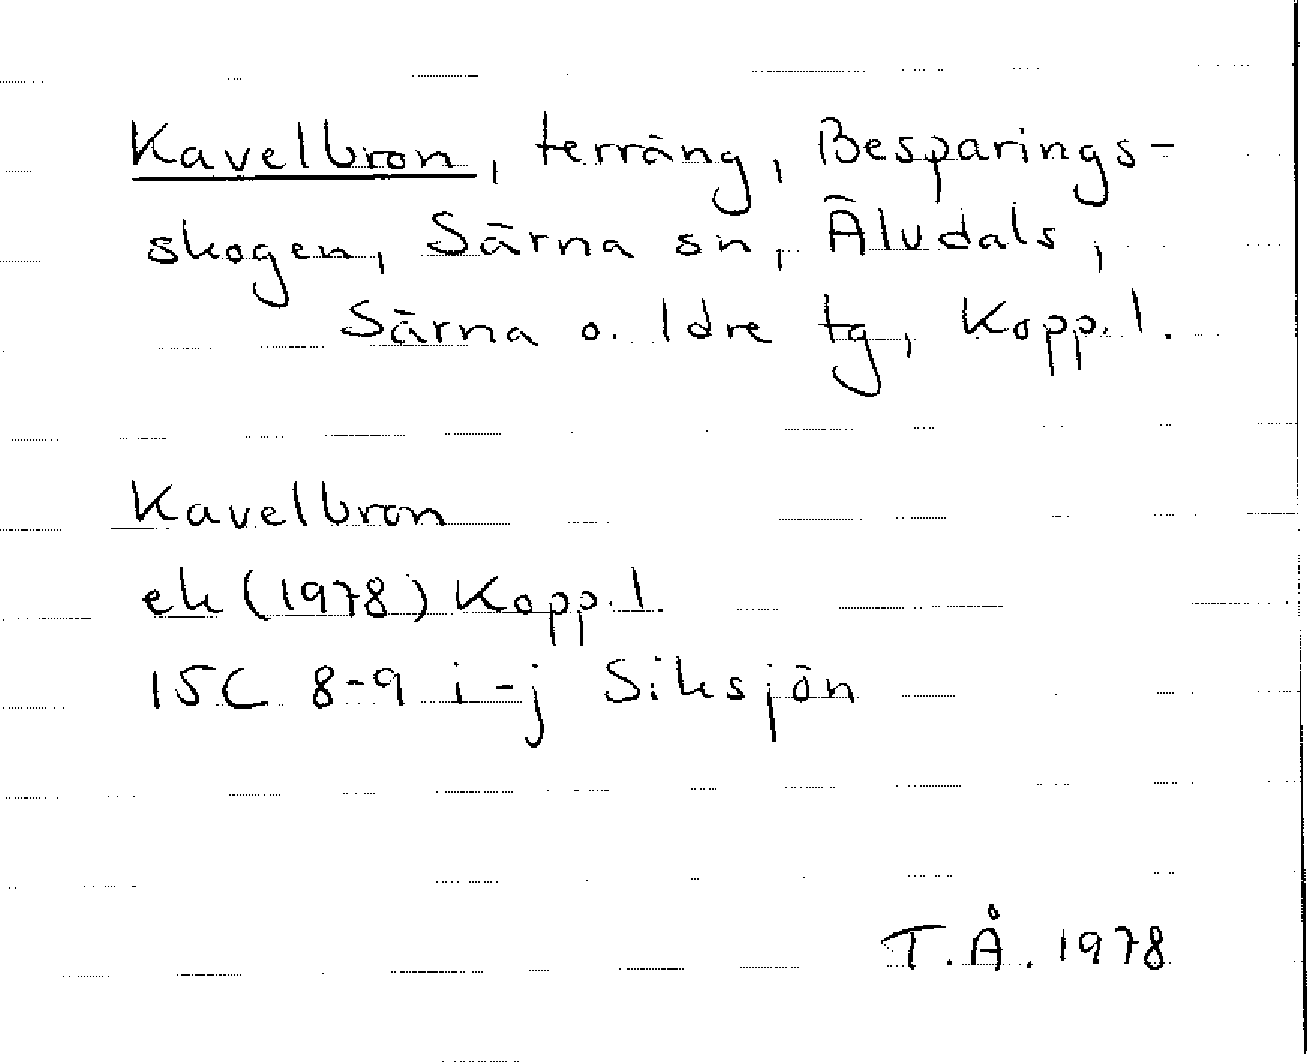 Kavelbron, terräng, Besparings-
skogen, Särna sn, Älvdals,
Särna o. Idre tg, Kopp. l.
Kavelbron
ek (1978) Kopp. l.
15C 8-9 i-j Siksjön
T.Å. 1978